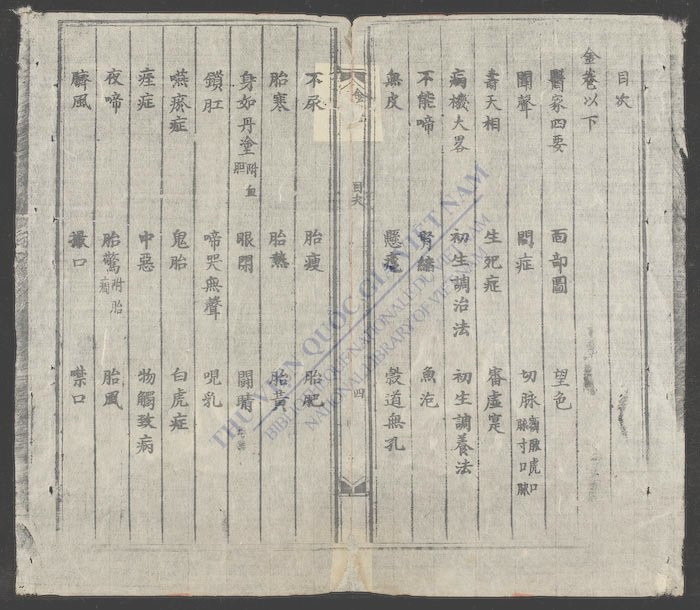 目次
金卷以下
醫家四要 面部圖 望色
聞聲 問症 切脉
壽夭相 生死症 審虛寔
病機大畧 初生調治法 初生調養法
不能啼 腎縮 魚泡
無皮 懸癰 穀道無孔
金
目次
四
不尿 胎瘦 胎肥
胎寒 胎熱 胎黃
身如丹塗附血胆 眼閉
鎖肛 啼哭無聲 呪乳
嚥瘀症 鬼胎 白虎症
痙症 中惡 物觸致病
夜啼 胎驚附胎癇 胎風
臍風 撮口 噤口
THƯ VIỆN QUỐC GIA VIỆT NAM
BIBLIOTHÈQUE NATIONALE DU VIETNAM
NATIONAL LIBRARY OF VIETNAM